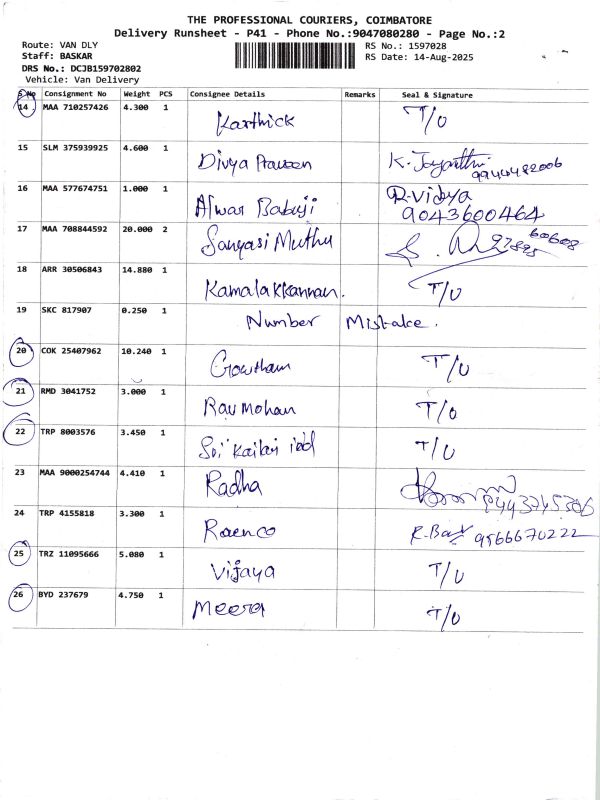 THE PROFESSIONAL COURIERS, COIMBATORE
Delivery Runsheet - P41 - Phone No.:9047080280 - Page No.:2
Route: VAN DLY RS No.: 1597028
Staff: BASKAR RS Date: 14-Aug-2025
DRS No.: DCJB159702802
Vehicle: Van Delivery
S No Consignment No Weight PCS Consignee Details Remarks Seal & Signature
14 MAA 710257426 4.300 1 Karthick T/U
15 SLM 375939925 4.600 1 Divya Praveen K. Jayanthi 9944482006
16 MAA 577674751 1.000 1 Alwar Babuji R.Vidya 9043600464
17 MAA 708844592 20.000 2 Sanyasi Muthu
18 ARR 30506843 14.880 1 Kamalakkannan. T/U
19 SKC 817907 0.250 1 Number Mistake.
20 COK 25407962 10.240 1 Gowtham T/U
21 RMD 3041752 3.000 1 Ravi Mohan T/U
22 TRP 8003576 3.450 1 Sri T/U
23 MAA 9000254744 4.410 1 Radha 9443745306
24 TRP 4155818 3.300 1 Raenco 9566670222
25 TRZ 11095666 5.080 1 Vijaya T/U
26 BYD 237679 4.750 1 Meera T/U